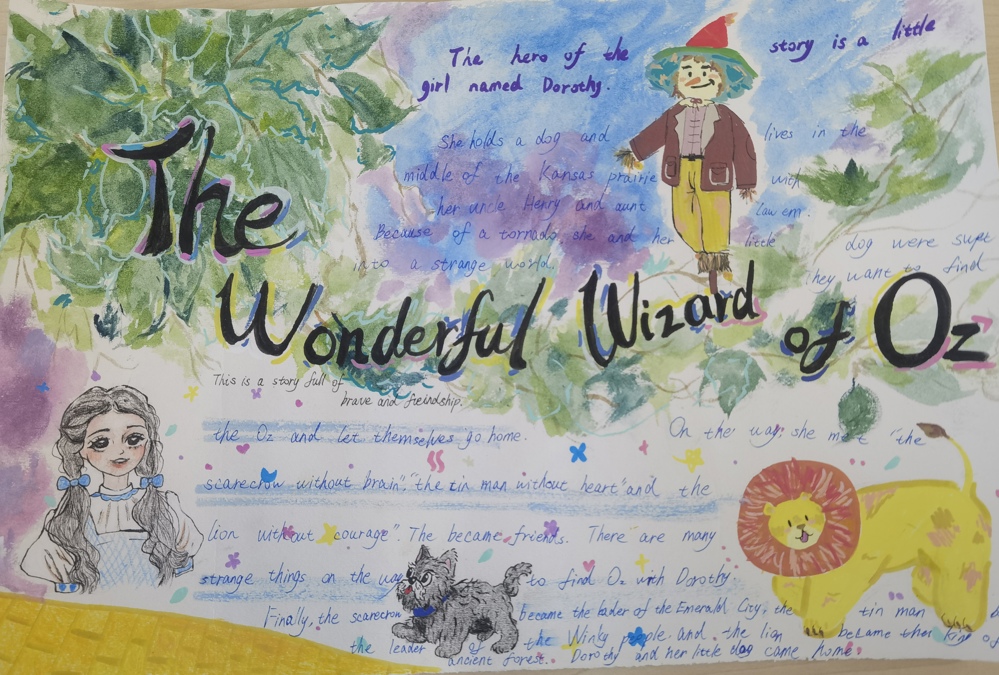 The hero of the story is a little
girl named Dorothy.
She holds a dog and lives in the
middle of the Kansas prairie with
her uncle Henry and aunt law em.
Because of a tornado, she and her little dog were swpt
into a strange world. they want to find
The
Wonderful Wizard of Oz
This is a story full of
brave and freindship.
the Oz and let themselves go home. On the way, she met "the
scarecrow without brain", "the tin man without heart" and the
lion without courage". The became friends. There are many
strange things on the way to find Oz with Dorothy.
Finally, the scarecrow became the leader of the Emerald City, the tin man
the leader of the Winky people and the lion became ther king of
ancient forest. Dorothy and her little dog came home.